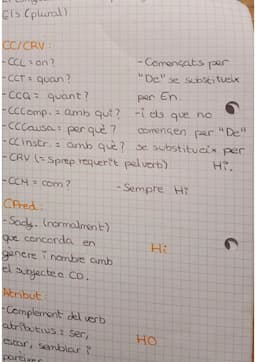 Els (plural)
CC/CRV:
-CCL = on? -Començats per
-CCT = quan? "De" se substitueix
-CCQ = quant? per En.
-CCComp. = amb qui? -i els que no
-CCCausa = per què? comencen per "De"
-CCInstr. = amb què? se substitueix per
-CRV (= Sprep requerit pel verb) Hi.
-CCM = com? -Sempre Hi
CPred.
-Sadj. (normalment)
que concorda en Hi
gènere i nombre amb
el subjecte o CD.
Atribut
-Complement del verb
atributius: ser, HO
estar, semblar i